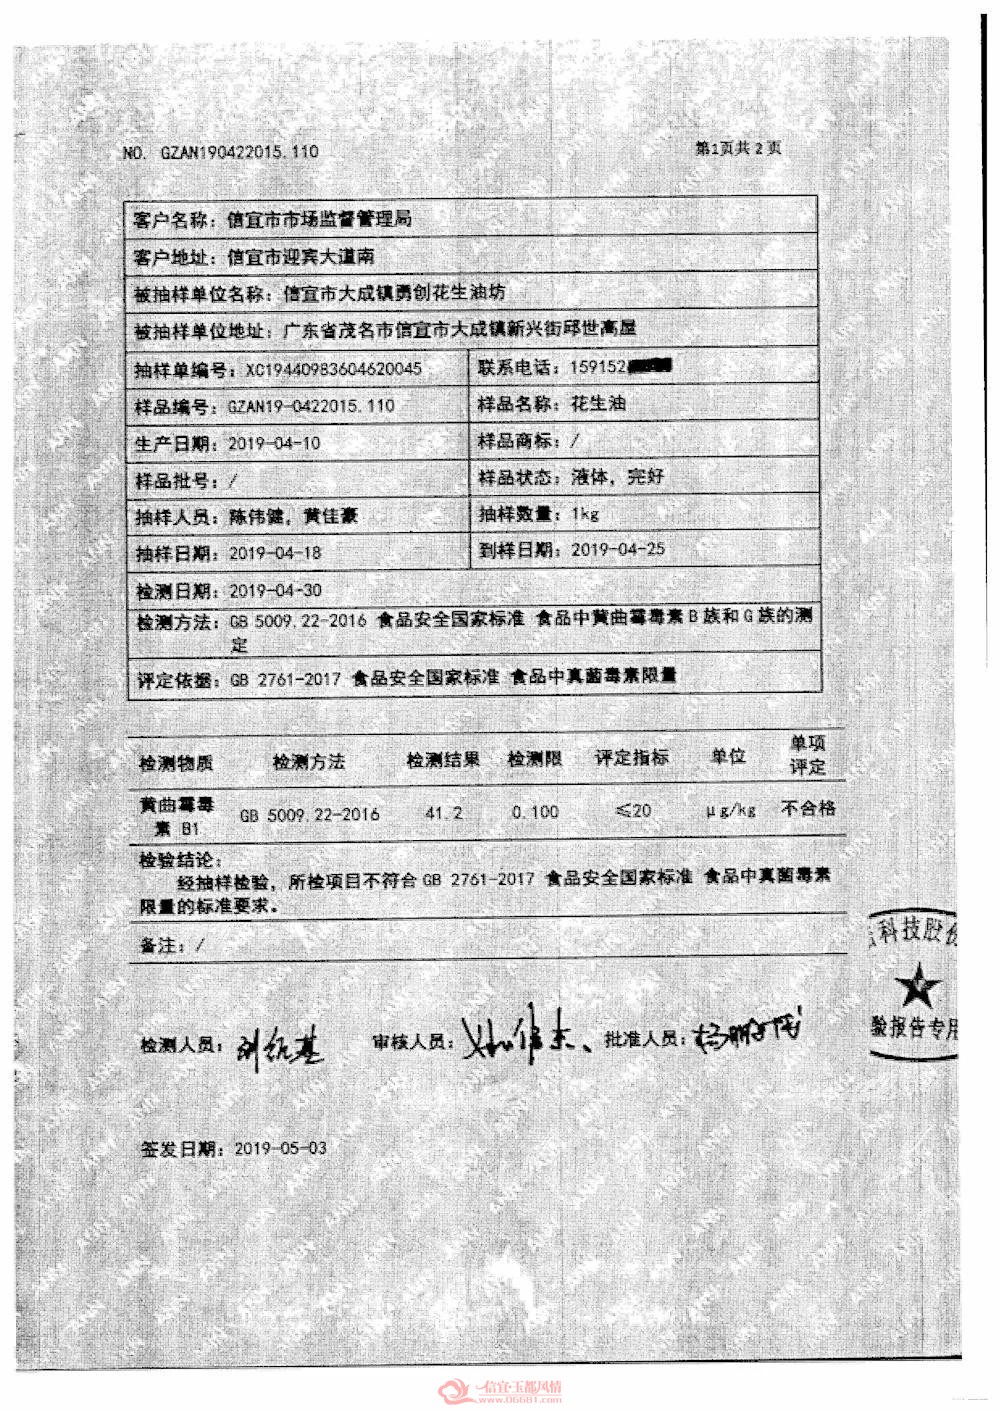 NO. GZAN190422015.110
第1页共 2 页
客户名称：信宜市市场监督管理局
客户地址：信宜市迎宾大道南
被抽样单位名称：信宜市大成镇勇创花生油坊
被抽样单位地址：广东省茂名市信宜市大成镇新兴街邱世高屋
抽样单编号：XC19440983604620045
联系电话：159152
样品编号：GZAN19-0422015.110
样品名称：花生油
生产日期：2019-04-10
样品商标：/
样品批号：/
样品状态：液体，完好
抽样人员：陈伟健，黄佳豪
抽样数量：1kg
抽样日期：2019-04-18
到样日期：2019-04-25
检测日期：2019-04-30
检测方法：GB 5009.22-2016 食品安全国家标准 食品中黄曲霉毒素 B 族和 G 族的测
定
评定依据：GB 2761-2017 食品安全国家标准 食品中真菌毒素限量
检测物质 检测方法 检测结果 检测限 评定指标 单位 单项
评定
黄曲霉毒
素 B1 GB 5009.22-2016 41.2 0.100 ≤20 μg/kg 不合格
检验结论：
经抽样检验，所检项目不符合 GB 2761-2017 食品安全国家标准 食品中真菌毒素
限量的标准要求。
备注：/
科技股份
验报告专用
检测人员： 审核人员： 批准人员：
签发日期：2019-05-03
信宜·玉都风情
www.06681.com